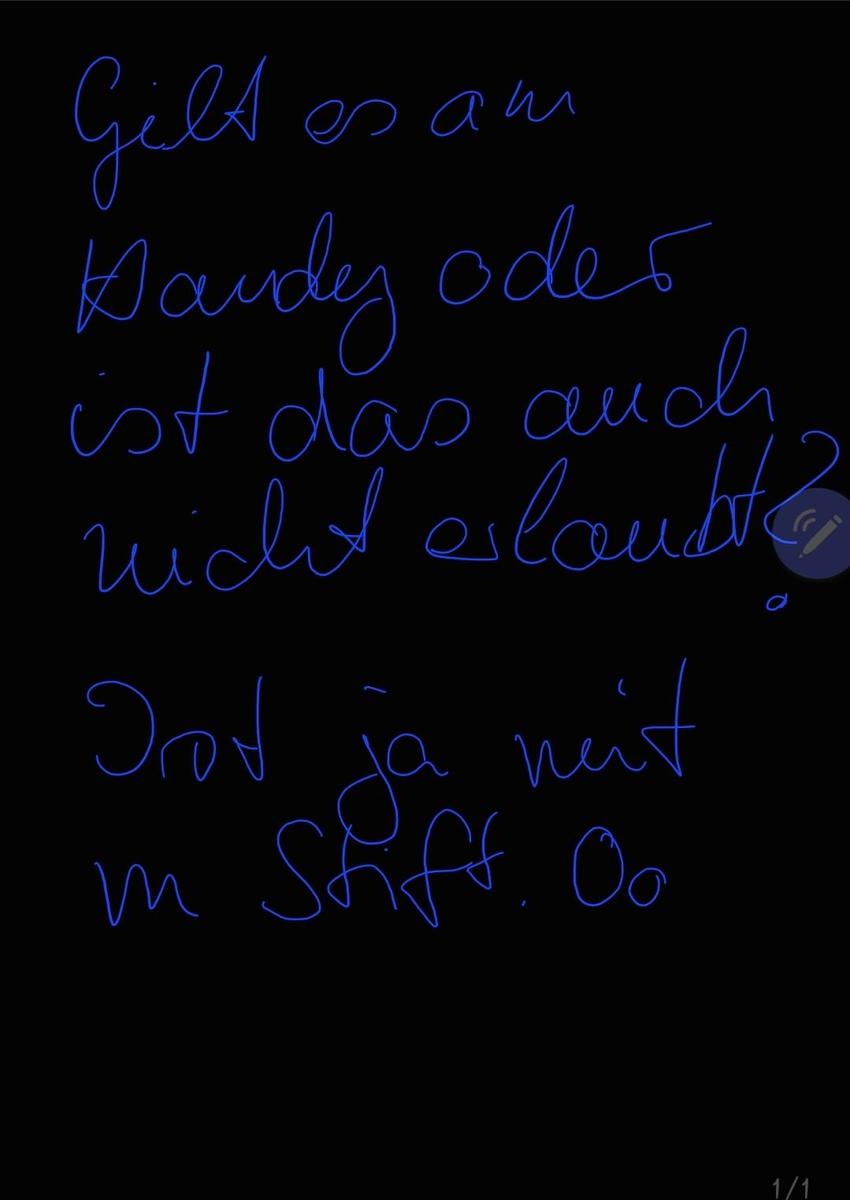 Gilt es am
Handy oder
ist das auch
nicht erlaubt?
Ist ja mit
m Stift. Oo
1/1